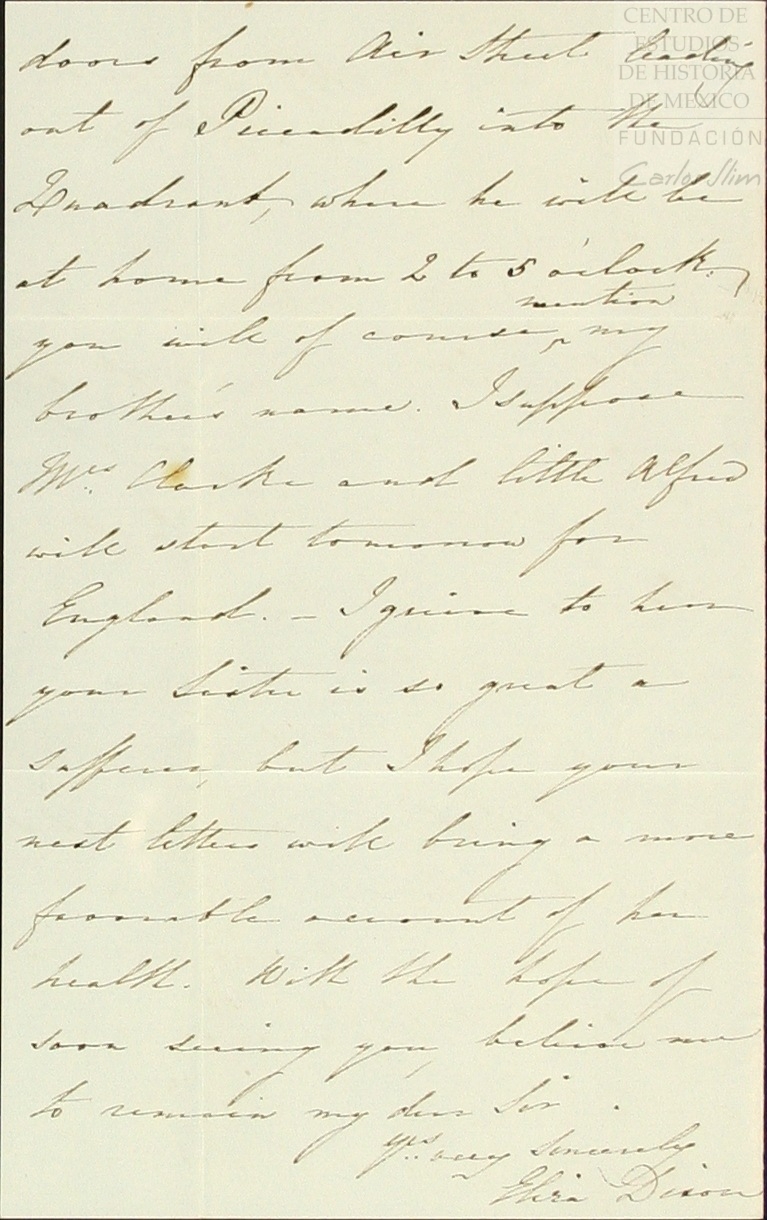 CENTRO DE
ESTUDIOS
DE HISTORIA
DE MEXICO
FUNDACIÓN
Carlos Slim
doors from Air Street leading
out of Piccadilly into the
Quadrant, where he will be
at home from 2 to 5 o'clock.,
mention
you will of course, ^ my
brother's name. I suppose
Mrs. Clarke and little Alfred
will start tomorrow for
England. - I grieve to hear
your Sister is so great a
sufferer, but I hope your
next letters will bring a more
favorable account of her
health. With the hope of
soon seeing you, believe me
to remain my dear Sir.
Yrs. very sincerely
Eliza Dixon